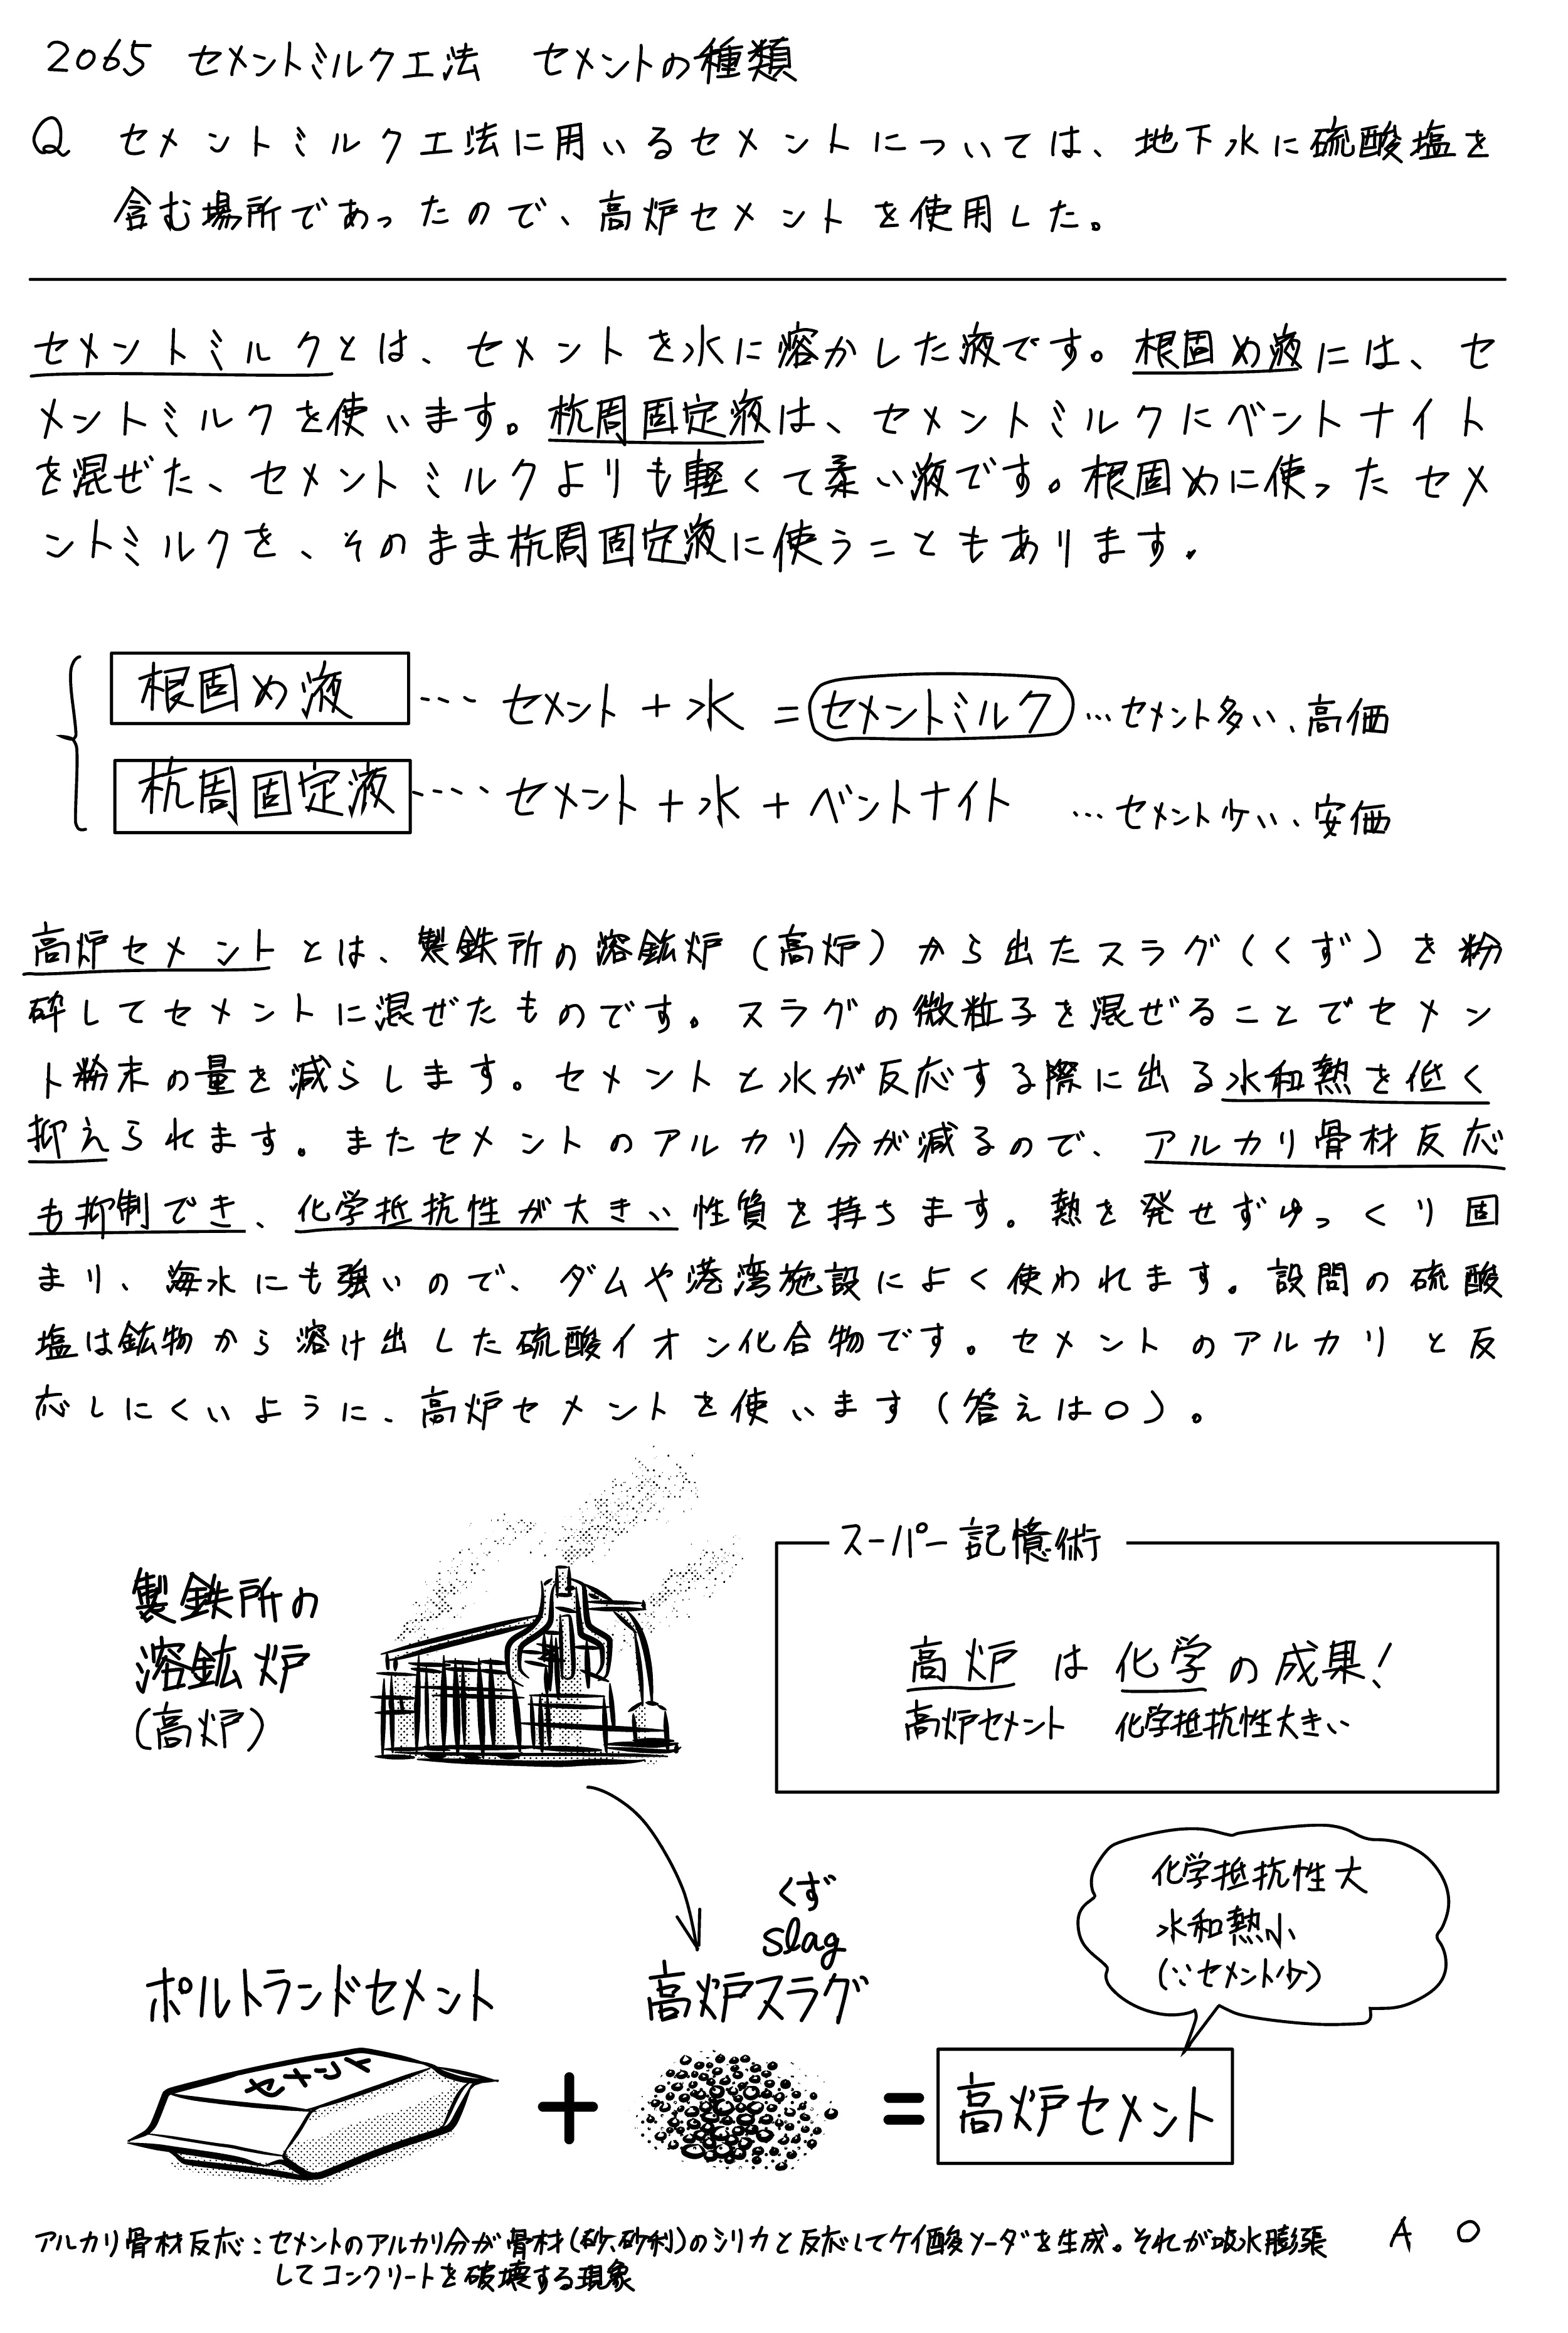 2065 セメントミルク工法 セメントの種類
Q セメントミルク工法に用いるセメントについては、地下水に硫酸塩を
含む場所であったので、高炉セメントを使用した。
セメントミルクとは、セメントを水に溶かした液です。根固め液には、セ
メントミルクを使います。杭周固定液は、セメントミルクにベントナイト
を混ぜた、セメントミルクよりも軽くて柔い液です。根固めに使ったセメ
ントミルクを、そのまま杭周固定液に使うこともあります。
根固め液 ‥‥ セメント + 水 = セメントミルク …セメント多い、高価
杭周固定液 ‥‥ セメント + 水 + ベントナイト …セメント少い、安価
高炉セメントとは、製鉄所の溶鉱炉（高炉）から出たスラグ（くず）を粉
砕してセメントに混ぜたものです。スラグの微粒子を混ぜることでセメン
ト粉末の量を減らします。セメントと水が反応する際に出る水和熱を低く
抑えられます。またセメントのアルカリ分が減るので、アルカリ骨材反応
も抑制でき、化学抵抗性が大きい性質を持ちます。熱を発せずゆっくり固
まり、海水にも強いので、ダムや港湾施設によく使われます。設問の硫酸
塩は鉱物から溶け出した硫酸イオン化合物です。セメントのアルカリと反
応しにくいように、高炉セメントを使います（答えは○）。
スーパー記憶術
製鉄所の
溶鉱炉
（高炉）
高炉は化学の成果！
高炉セメント 化学抵抗性大きい
くず
slag
高炉スラグ
化学抵抗性大
水和熱小
（∵セメント少）
ポルトランドセメント
セメント
+
= 高炉セメント
アルカリ骨材反応：セメントのアルカリ分が骨材（砂、砂利）のシリカと反応してケイ酸ソーダを生成。それが吸水膨張
してコンクリートを破壊する現象
A ○